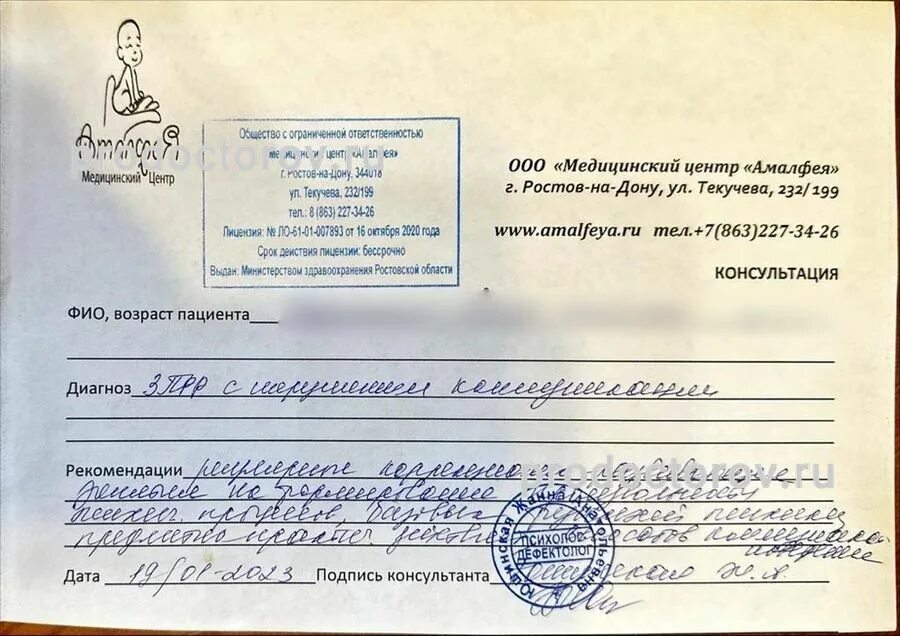 Амалфея
Медицинский Центр
Общество с ограниченной ответственностью
медицинский центр «Амалфея»
г. Ростов-на-Дону, 344018
ул. Текучева, 232/199
тел.: 8 (863) 227-34-26
Лицензия: № ЛО-61-01-007893 от 16 октября 2020 года
Срок действия лицензии: бессрочно
Выдан: Министерством здравоохранения Ростовской области
ООО «Медицинский центр «Амалфея»
г. Ростов-на-Дону, ул. Текучева, 232/199
www.amalfeya.ru тел.+7(863)227-34-26
КОНСУЛЬТАЦИЯ
ФИО, возраст пациента
Диагноз ЗПРР с нарушением коммуникации
Рекомендации
prodoctorov.ru
на формирование
психич. процессов, базовых
предметно-практич. действий
Дата 19/01-2023 Подпись консультанта
Юшинская Жанна Анатольевна
ПСИХОЛОГ
ДЕФЕКТОЛОГ
prodoctorov.ru